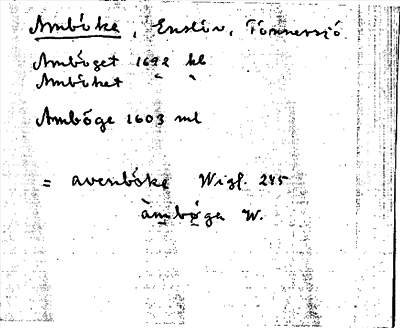 Amböke, Enslöv, Tönnersjö
Amböget 1692 kb
Amböket " "
Amböge 1603 ml
= avenböke Wigf. 245
àmbøga W.